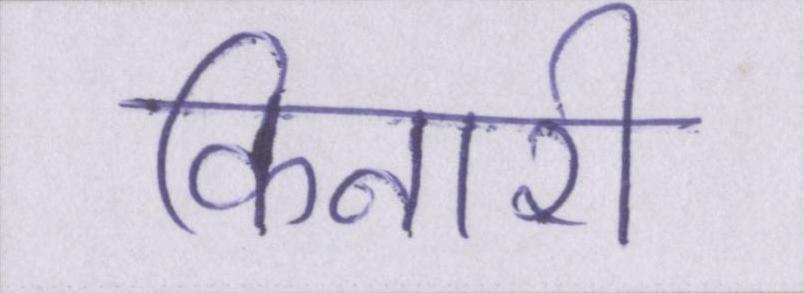 किनारी